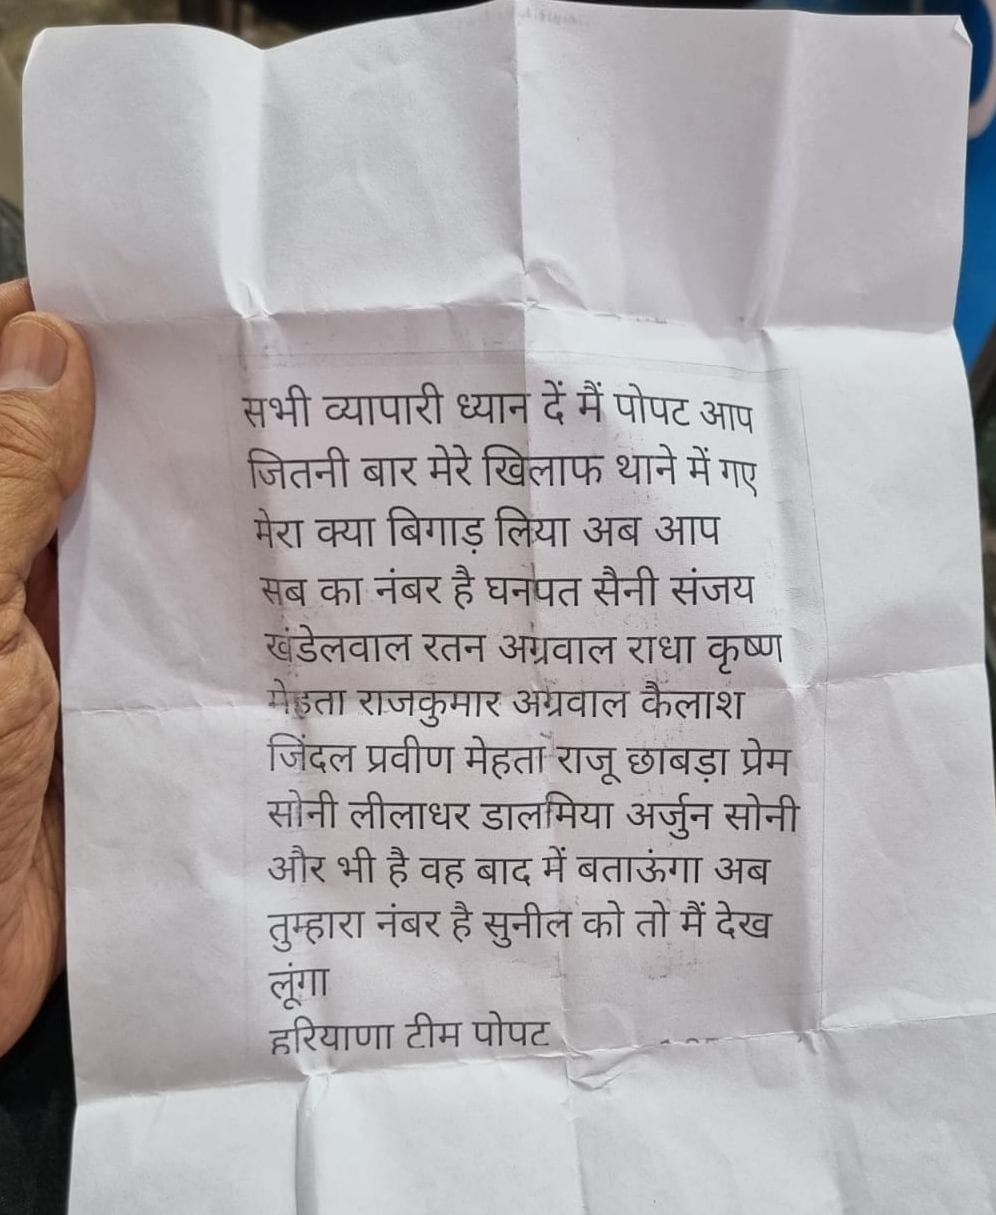 सभी व्यापारी ध्यान दें मैं पोपट आप
जितनी बार मेरे खिलाफ थाने में गए
मेरा क्या बिगाड़ लिया अब आप
सब का नंबर है घनपत सैनी संजय
खंडेलवाल रतन अग्रवाल राधा कृष्ण
मेहता राजकुमार अग्रवाल कैलाश
जिंदल प्रवीण मेहता राजू छाबड़ा प्रेम
सोनी लीलाधर डालमिया अर्जुन सोनी
और भी है वह बाद में बताऊंगा अब
तुम्हारा नंबर है सुनील को तो मैं देख
लूंगा
हरियाणा टीम पोपट